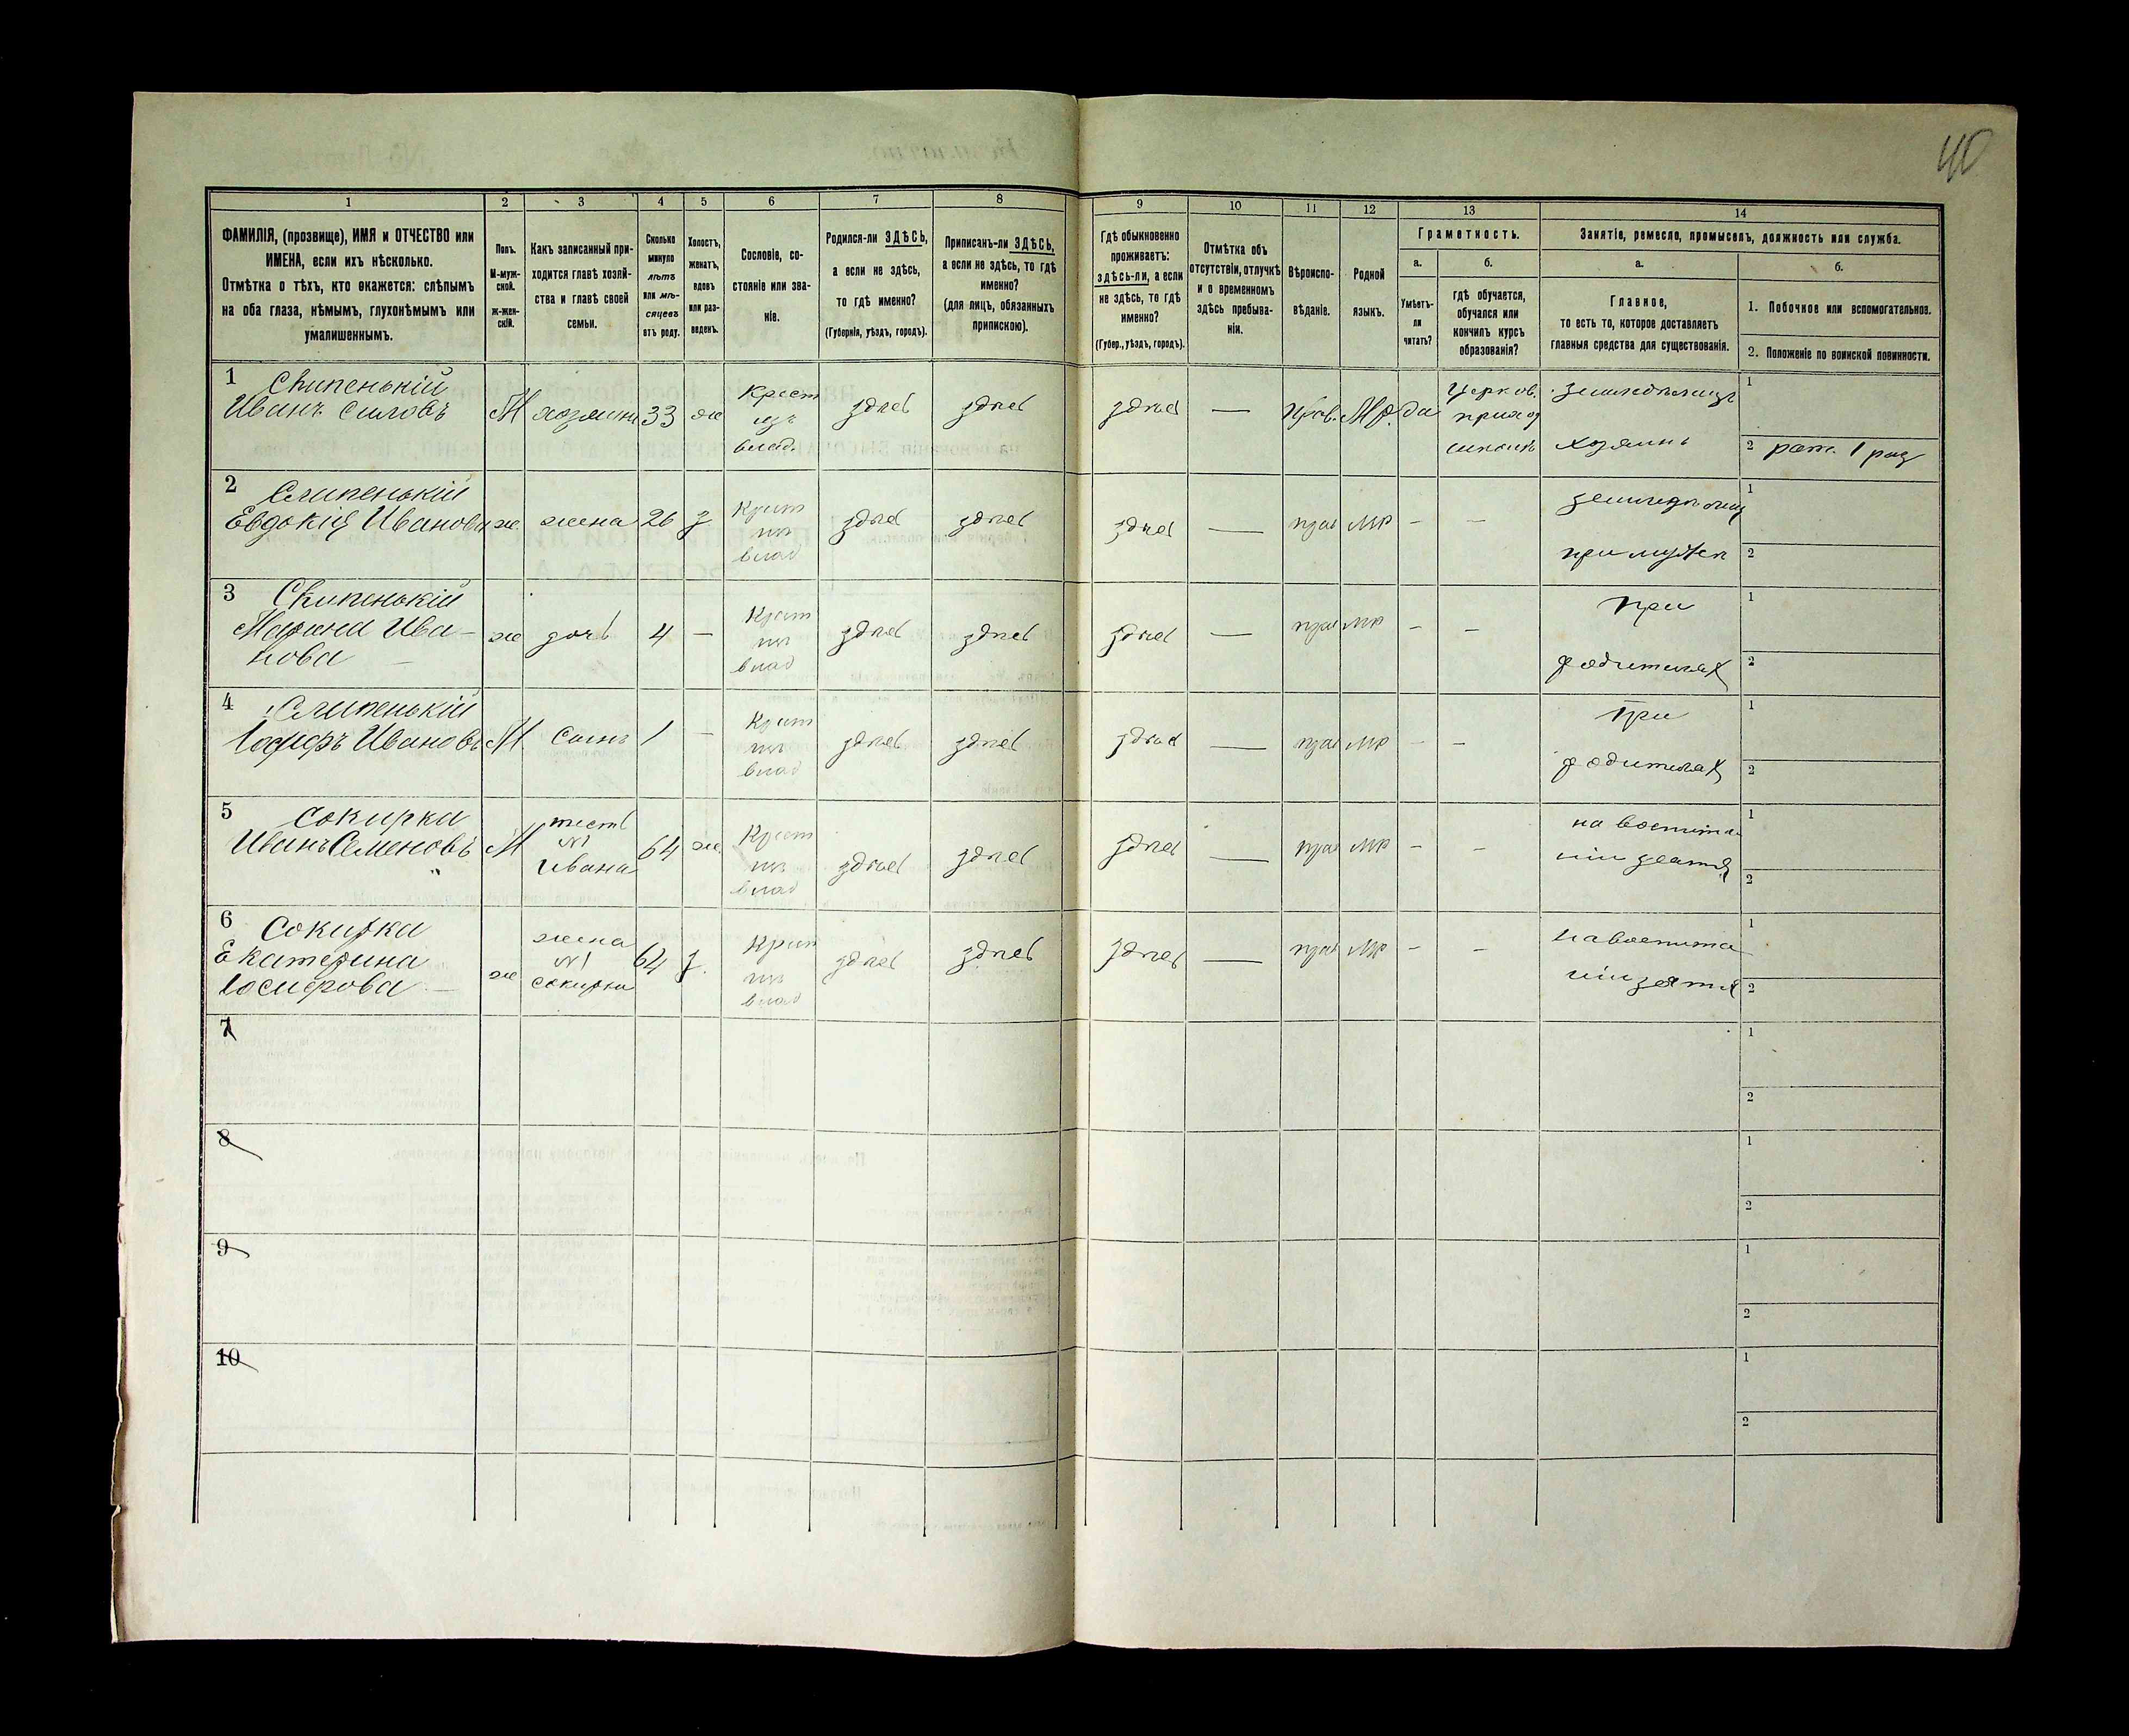 40
1 2 3 4 5 6 7 8 9 10 11 12 13 14
ФАМИЛІЯ, (прозвище), ИМЯ и ОТЧЕСТВО или
ИМЕНА, если ихъ нѣсколько.
Отмѣтка о тѣхъ, кто окажется: слѣпымъ
на оба глаза, нѣмымъ, глухонѣмымъ или
умалишеннымъ.
Полъ.
М-муж-
ской.
Ж-жен-
скій.
Какъ записанный при-
ходится главѣ хозяй-
ства и главѣ своей
семьи.
Сколько
минуло
лѣтъ
или мѣ-
сяцевъ
отъ роду.
Холостъ,
женатъ,
вдовъ
или раз-
веденъ.
Сословіе, со-
стояніе или зва-
ніе.
Родился-ли ЗДѢСЬ,
а если не здѣсь,
то гдѣ именно?
(Губернія, уѣздъ, городъ).
Приписанъ-ли ЗДѢСЬ,
а если не здѣсь, то гдѣ
именно?
(для лицъ, обязанныхъ
припискою).
Гдѣ обыкновенно
проживаетъ:
здѣсь-ли, а если
не здѣсь, то гдѣ
именно?
(Губер., уѣздъ, городъ).
Отмѣтка объ
отсутствіи, отлучкѣ
и о временномъ
здѣсь пребыва-
ніи.
Вѣроиспо-
вѣданіе.
Родной
языкъ.
Грамотность.
а.
Умѣетъ-
ли
читать?
б.
гдѣ обучается,
обучался или
кончилъ курсъ
образованія?
Занятіе, ремесло, промыселъ, должность или служба.
а.
Главное,
то есть то, которое доставляетъ
главныя средства для существованія.
б.
1. Побочное или вспомогательное.
2. Положеніе по воинской повинности.
1
Иванъ М хозяинъ 33 ж Крест изъ влад. здѣсь здѣсь здѣсь — прав. Мр. да церков. приход школѣ
хозяинъ
1
2 1 раз
2
Евдокія Иванова ж жена 26 з Крест из влад здѣсь здѣсь здѣсь — прав мр – –
при мужѣ
1
2
3 Скипенькій
Марина Ива-
нова ж дочь 4 – Крест из влад здѣсь здѣсь здѣсь — прав мр – –
при
родителях
1
2
4
Іосифъ Ивановъ М. сынъ 1 – Крест из влад здѣсь здѣсь здѣсь — прав мр – –
при
родителях
1
2
5 Сокирка
Иванъ Семеновъ М тесть №1 Ивана 64 ж. Крест из влад здѣсь здѣсь здѣсь — прав мр – –
на воспита
ніи зятя
1
2
6 Сокирка
Екатерина
Іосифова — ж жена №1 Сокирки 64 з. Крест из влад здѣсь здѣсь здѣсь — прав мр – –
на воспита
ніи зятя
1
2
7
1
2
8
1
2
9
1
2
10
1
2